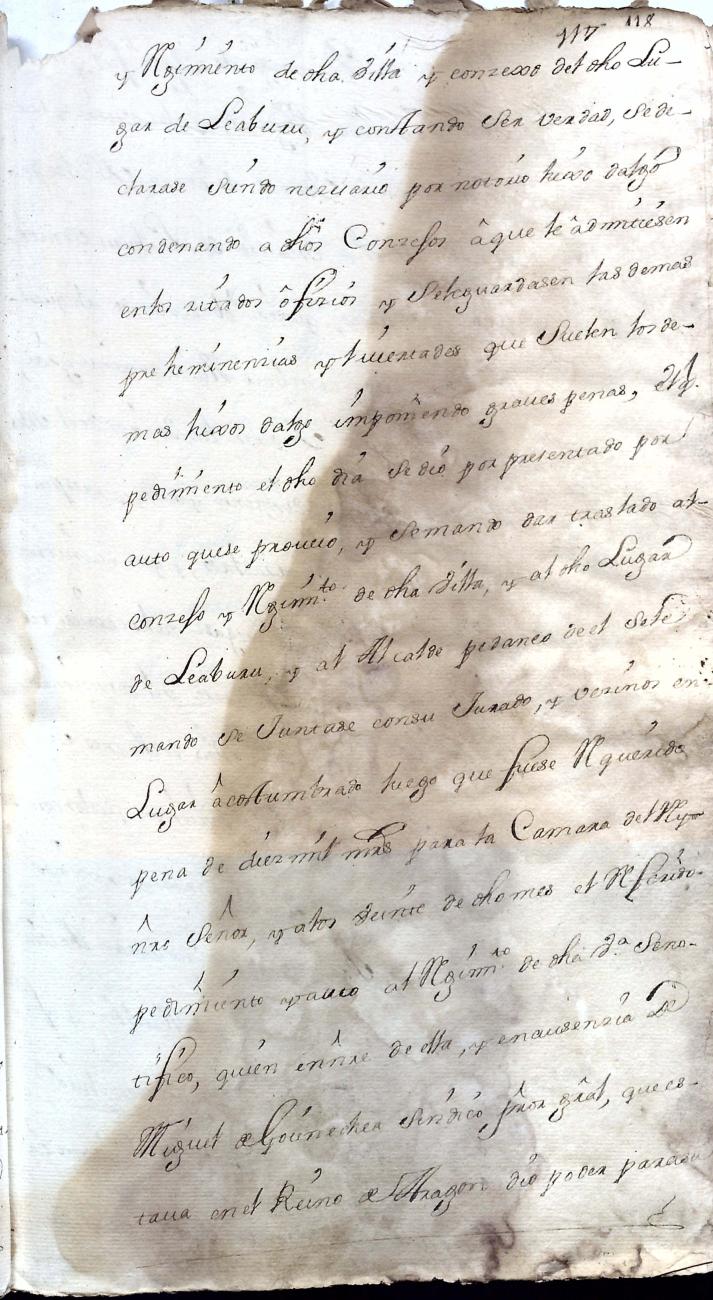 117 118
y Rgimiento de dha villa y conzexo del dho Lu-
gar de Leaburu, y constando ser verdad, se de-
clarase siendo nezesario por notorio hixo dalgo
condenando a dhos Conzesos â que le âdmitiesen
en los zitados ôfizios y se le guardasen las demas
preheminenzias y livertades que suelen los de-
mas hixos dalgo imponiendo graves penas, el qᵉ.
pedimento el dho dia se dio por presentado por
auto que se proveio, y se mando dar traslado al
conzeso y Rgimᵗᵒ de dha villa, y al dho Lugar
de Leaburu, y al Alcalde pedaneo de el se le
mando se Juntase con su Jurado, y vezinos en
Lugar âcostumbrado luego que fuese Rquerido
pena de diez mil mrs para la Camara del Ry
nro Señor, y a los veinte de dho mes el Rferido
pedimiento y auto al Rgimᵗᵒ de dha vᵃ se no-
tifico, quien en nre de ella, y en ausenzia de
Miguel de Goienechea sindico pror gral, que es-
tava en el Reino de Aragon dio poder para su